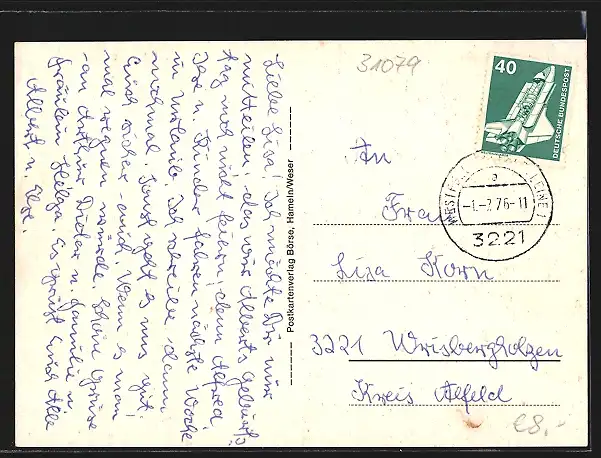 31079
Liebe Lisa! Ich möchte Dir nur
mitteilen, das wir Alberts Geburts
tag noch nicht feiern, denn Alfred,
Ilse u. Kinder fahren nächste Woche
in Urlaub. Ich schreibe dann
nochmal. Sonst geht es uns gut.
Euch sicher auch. Wenn es man
mal regnen würde. Schöne Grüße
an Arthur, Dieter u. Familie u.
Fräulein Helga. Es grüßt Euch Alle
Albert u. Else.
Postkartenverlag Börse, Hameln/Weser
40
DEUTSCHE BUNDESPOST
(LEINE)
-1.-7.76-11
3221
An
Frau
Lisa Korn
3221 Wrisbergholzen
Kreis Alfeld
€8,-